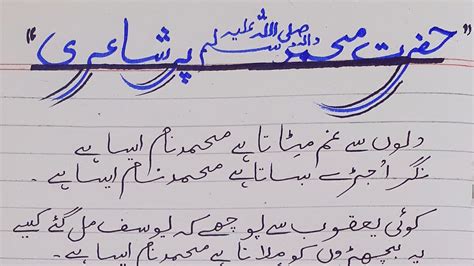 "حضرت محمد صلی اللہ علیہ والہ وسلم پر شاعری"
دلوں سے غم مِٹاتا ہے محمد نام ایسا ہے
نگر اُجڑے بساتا ہے محمد نام ایسا ہے ۔
کوئی یعقوب سے پوچھے کہ یوسف مل گئے کیسے
یہ بچھڑوں کو ملاتا ہے محمد نام ایسا ہے ۔